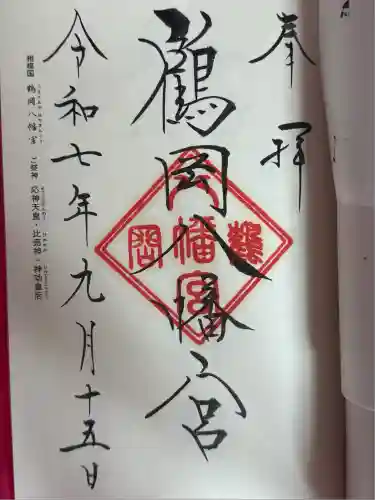 奉拝
鶴岡八幡宮
鶴岡八幡宮
令和七年九月十五日
相模国 鶴岡八幡宮 ご祭神 応神天皇・比売神・神功皇后